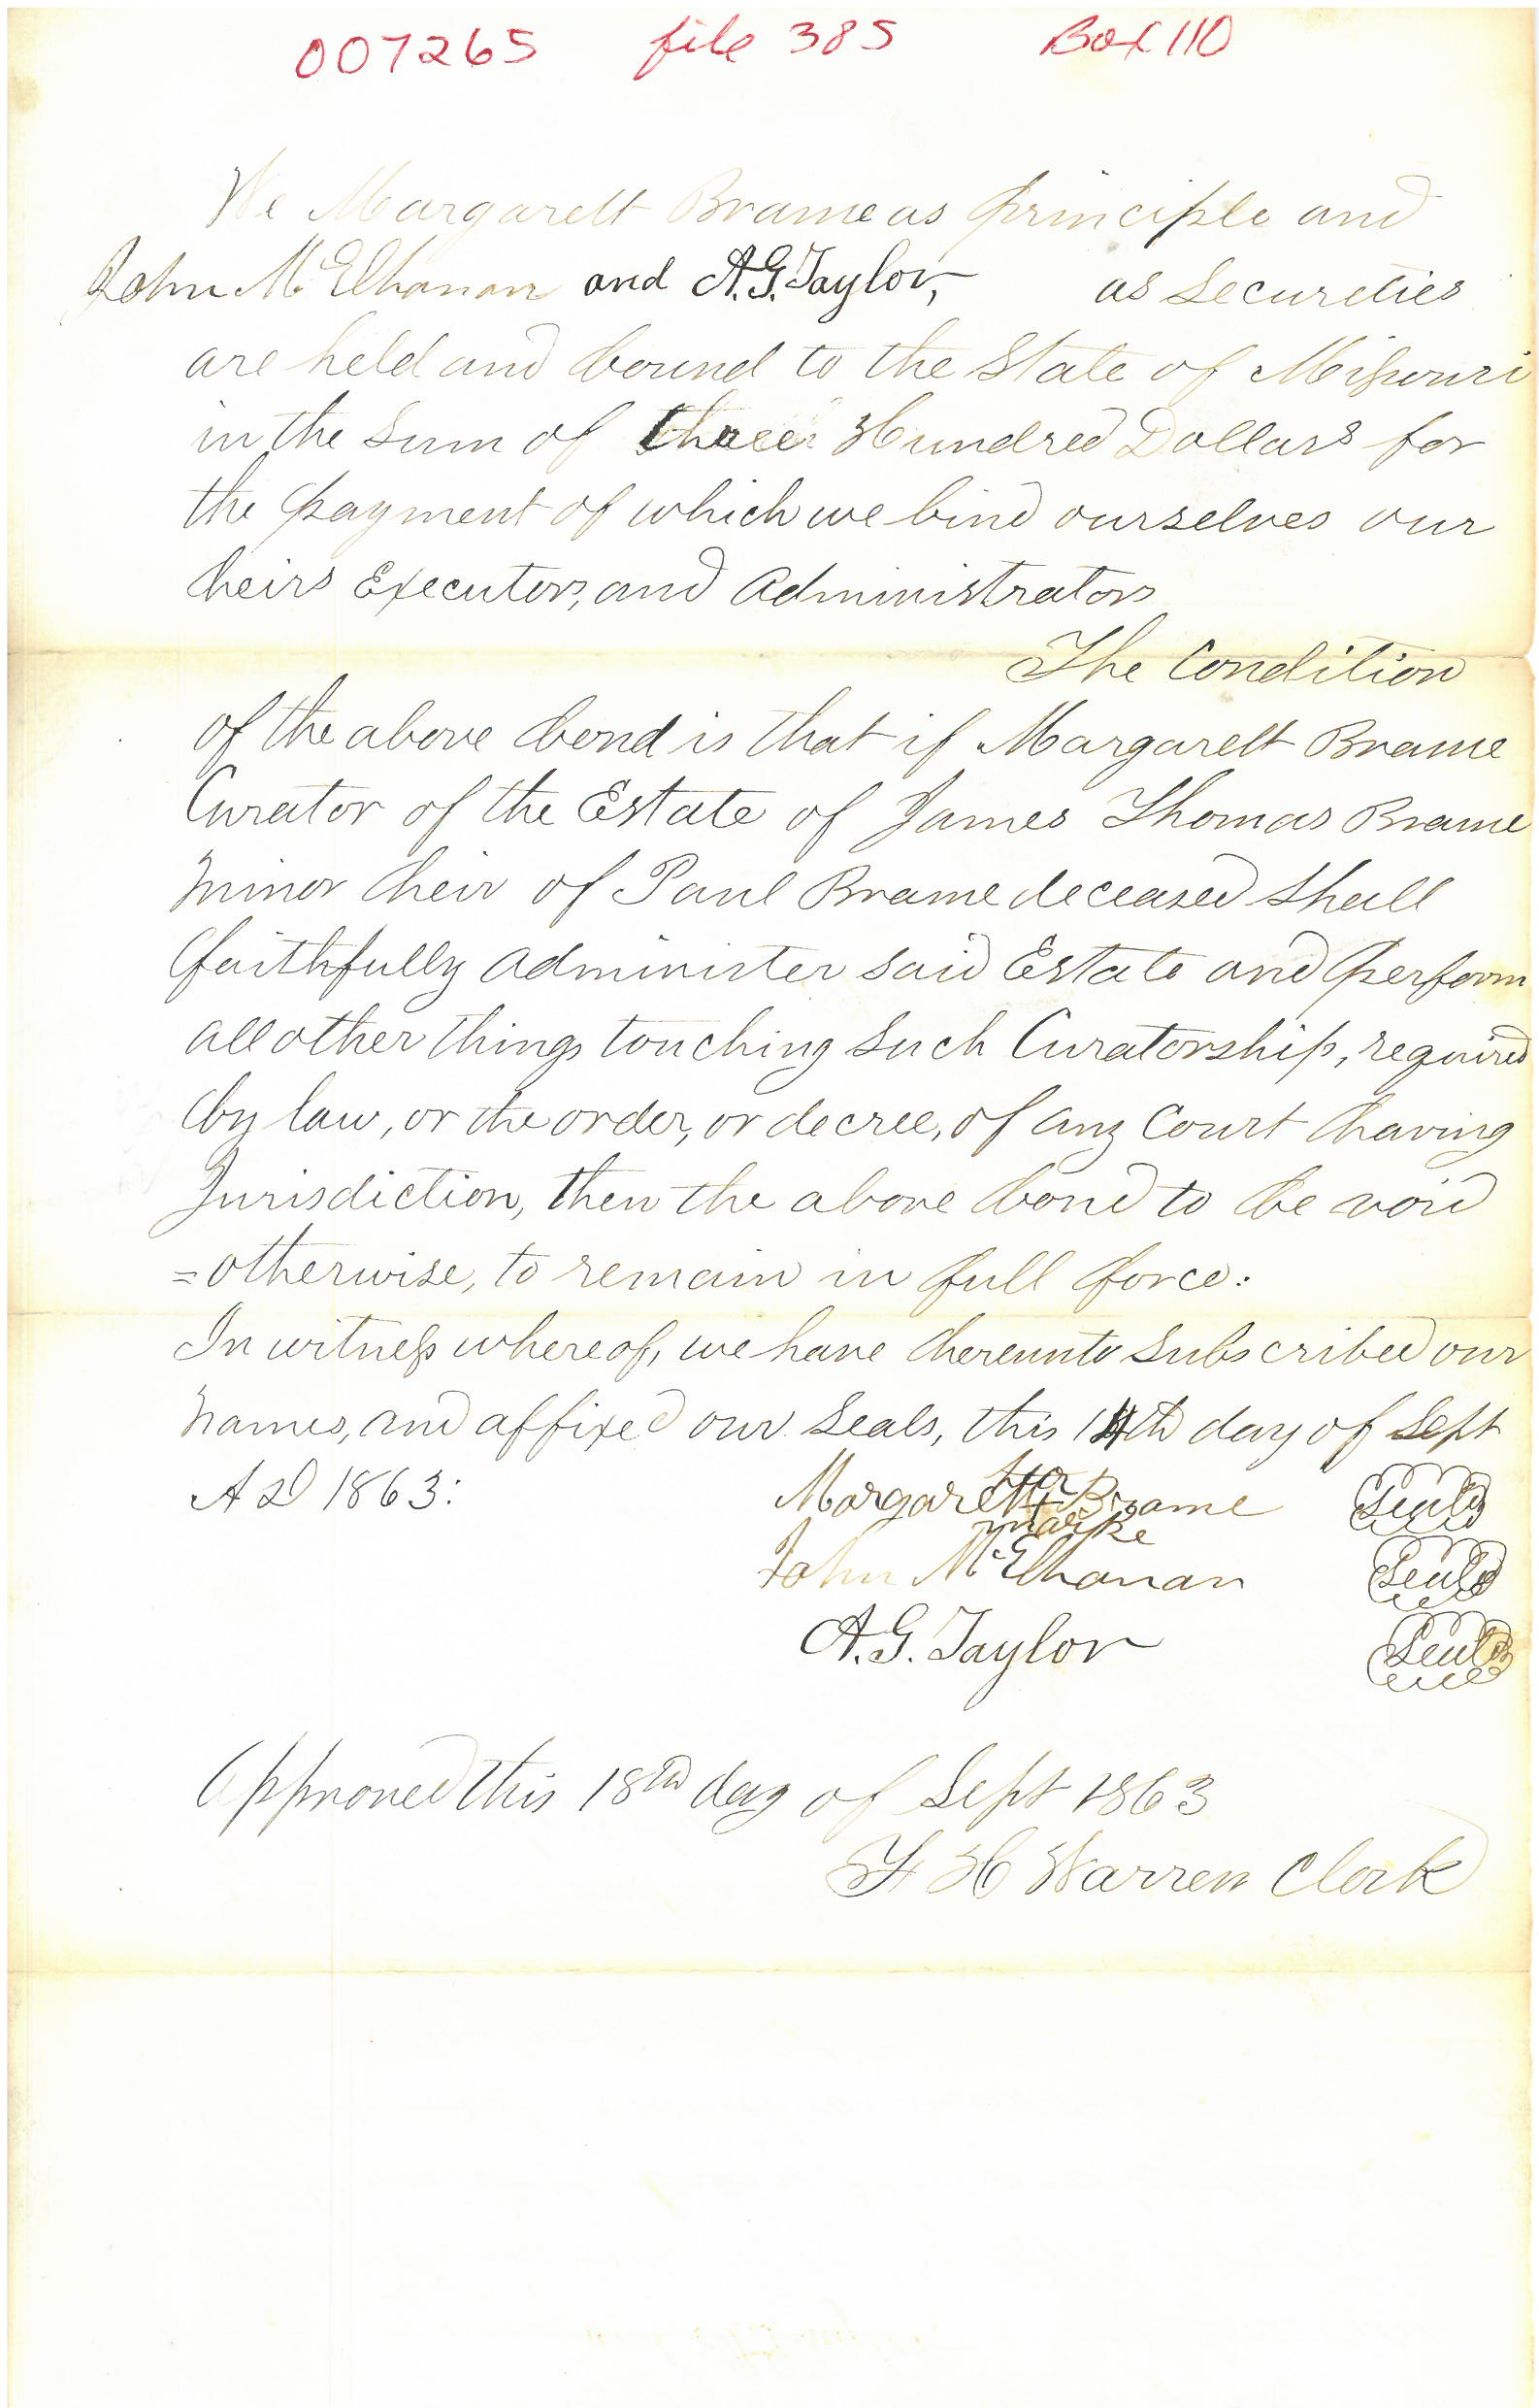 007265 file 385 Box 110
We Margarett Brame as principle and
John McElhanan and A.G. Taylor, as Securities
are held and bound to the State of Missouri
in the Sum of three Hundred Dollars for
the payment of which we bind ourselves our
heirs Executors, and Administrators
The Condition
of the above bond is that if Margarett Brame
Curator of the Estate of James Thomas Brame
minor heir of Paul Brame deceased Shall
faithfully administer said Estate and perform
all other things touching Such Curatorship, required
by law, or the order, or decree, of any Court having
Jurisdiction, then the above bond to be void
=otherwise, to remain in full force:
In witness whereof, we have hereunto Subscribed our
names, and affixed our Seals, this 14th day of Sept
A D 1863:
Margarett her x Brame Seal
marke
John McElhanan Seal
A.G. Taylor Seal
Approved this 18th day of Sept 1863
F H Warren Clerk